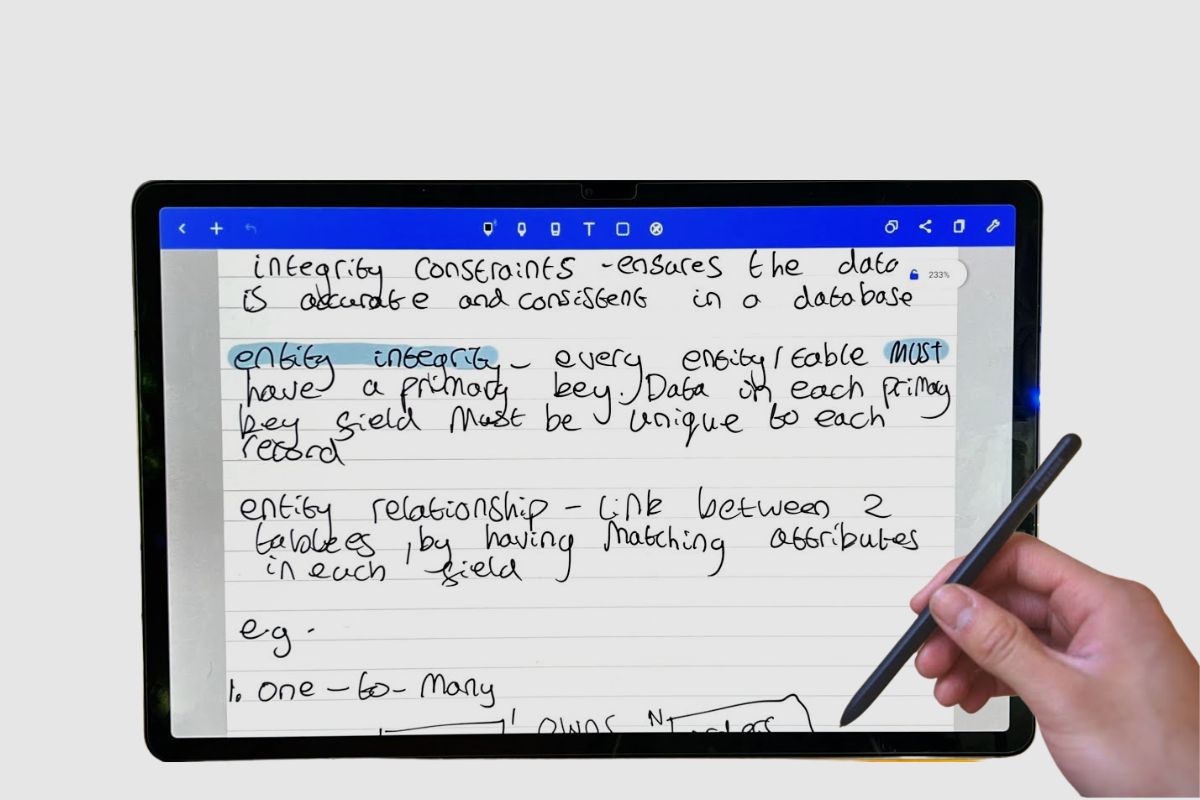 233%
integrity constraints - ensures the data
is accurate and consistent in a database
entity integrity - every entity/table MUST
have a primary key. Data in each primary
key field Must be unique to each
record
entity relationship - link between 2
tablees, by having Matching attributes
in each field
eg -
1. one - to - Many
1 owns N